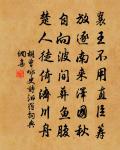 襄王不用直臣筹
放逐南来泽国秋
自向波间葬鱼腹
楚人徒倚济川舟
胡曾咏史诗汨罗